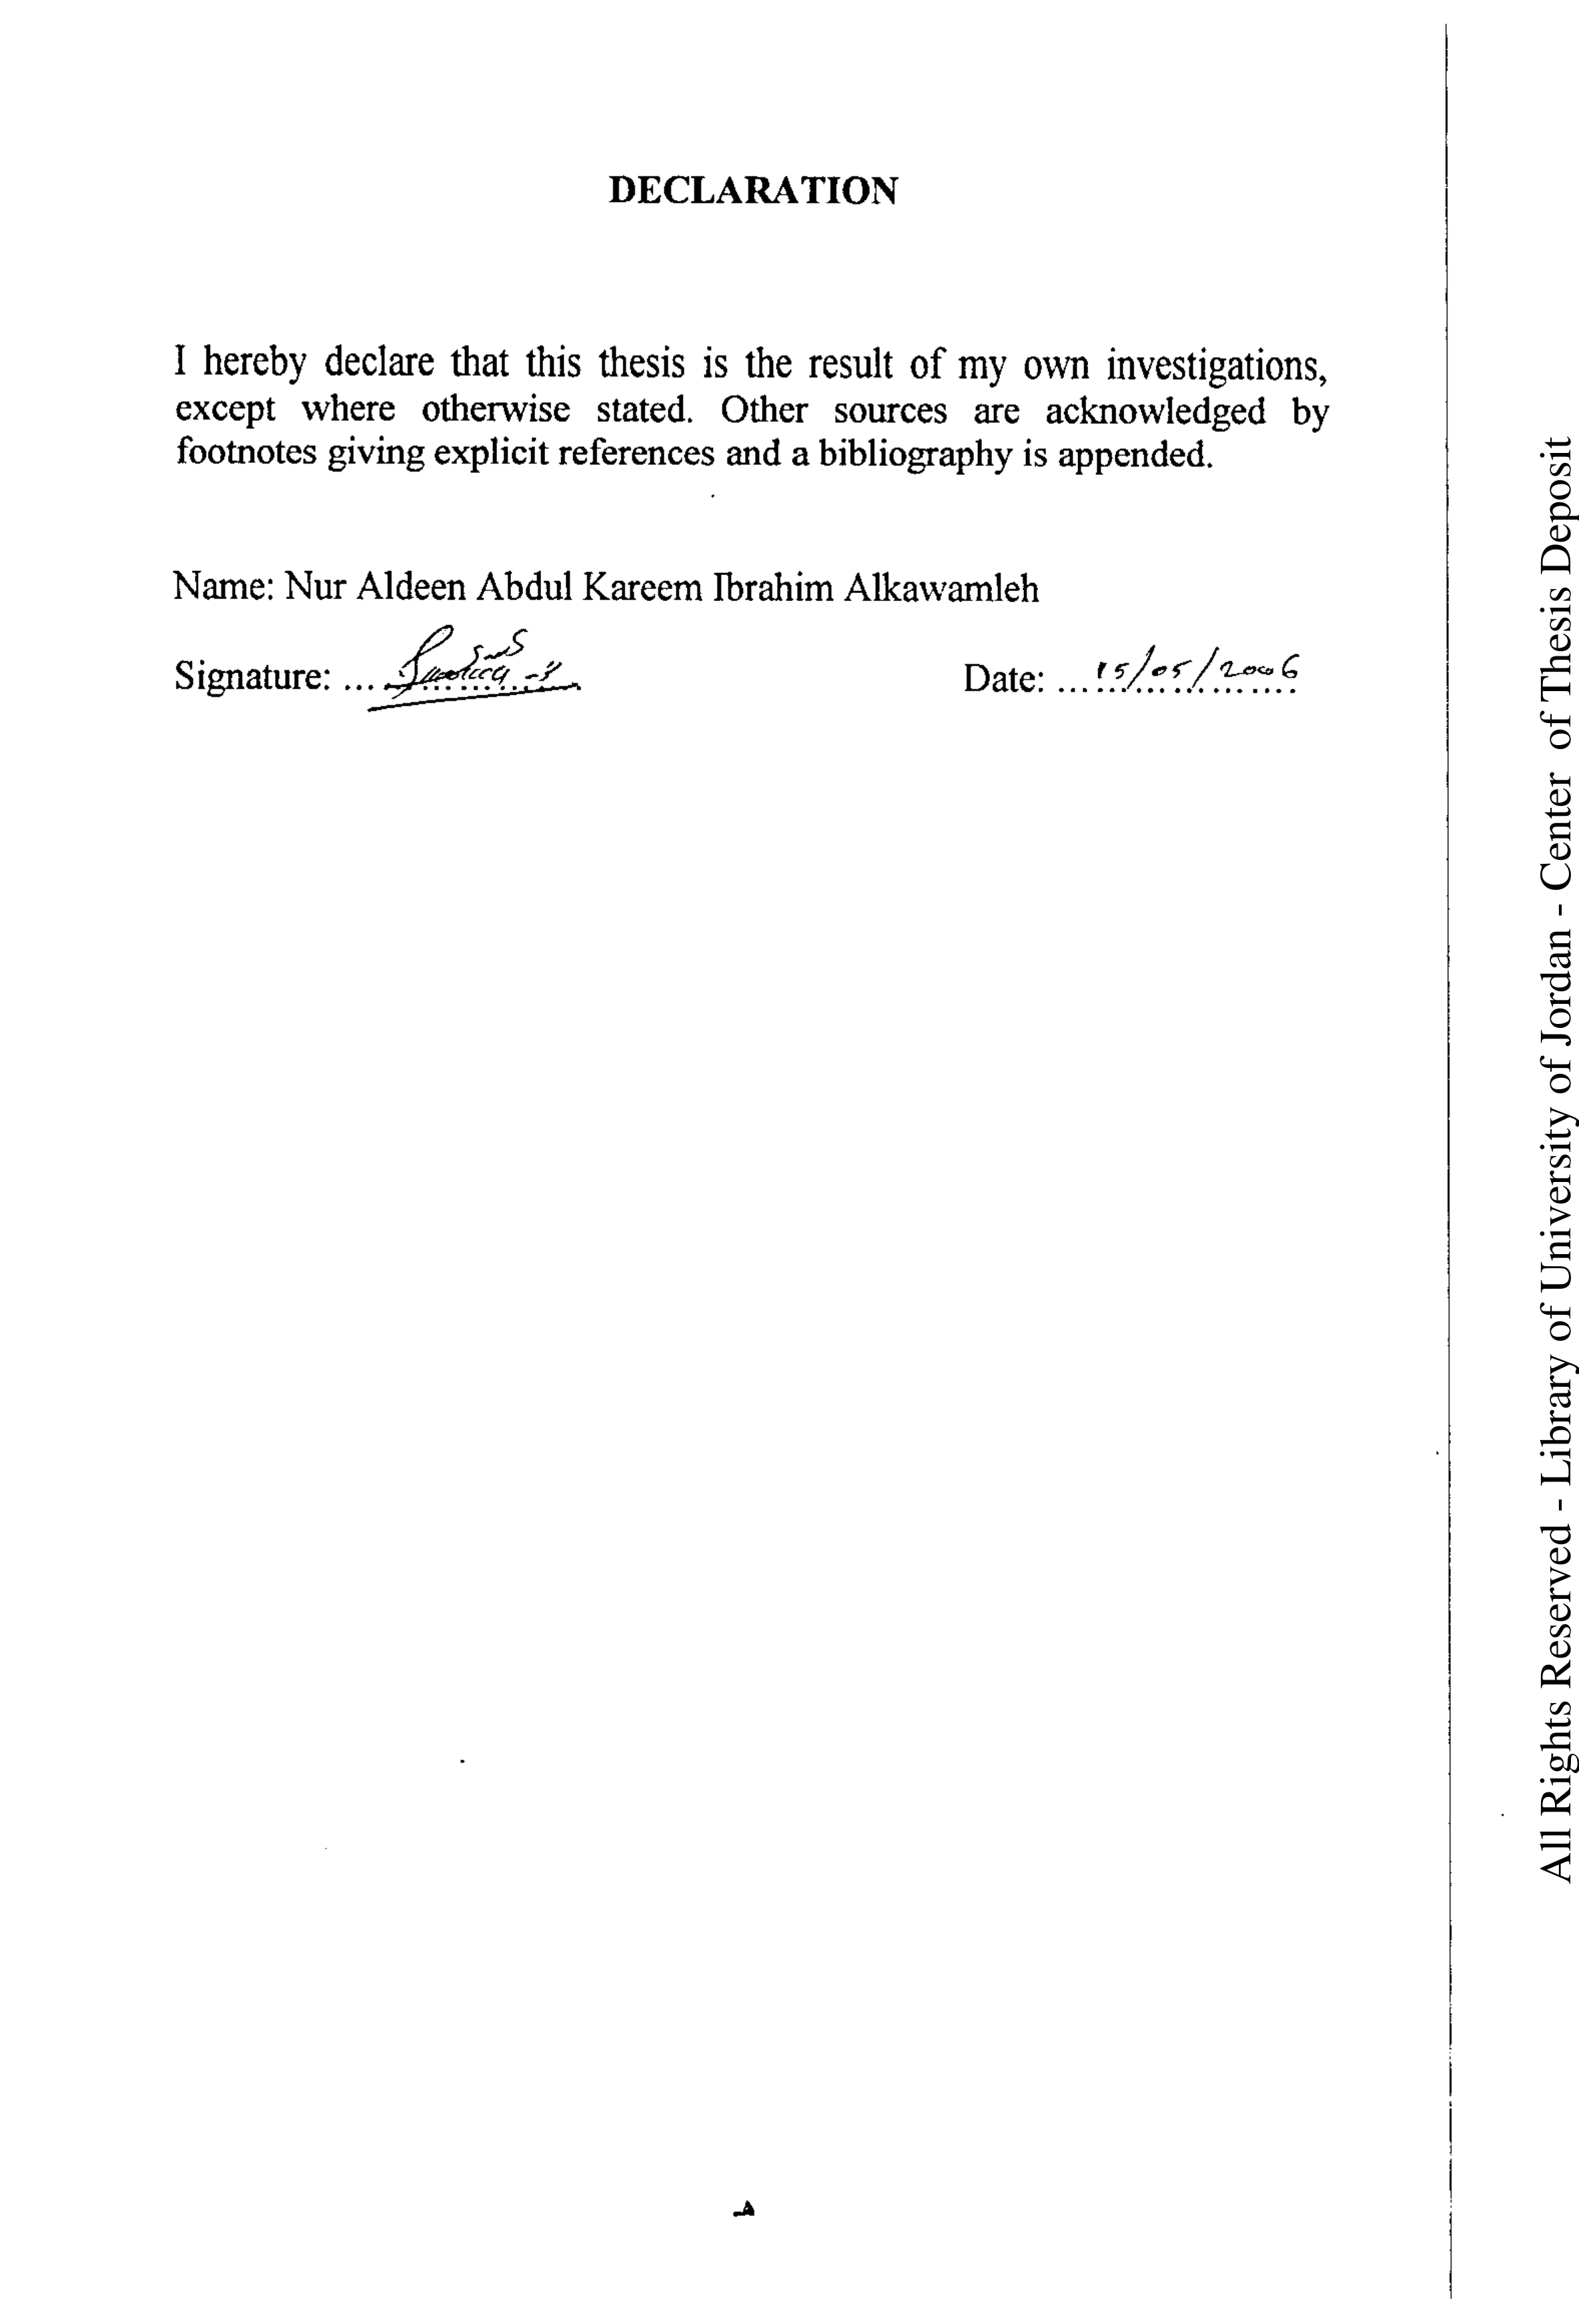 DECLARATION
I hereby declare that this thesis is the result of my own investigations,
except where otherwise stated. Other sources are acknowledged by
footnotes giving explicit references and a bibliography is appended.
Name: Nur Aldeen Abdul Kareem Ibrahim Alkawamleh
Signature: ...
Date: ... 15/05/2006
هـ
All Rights Reserved - Library of University of Jordan - Center of Thesis Deposit